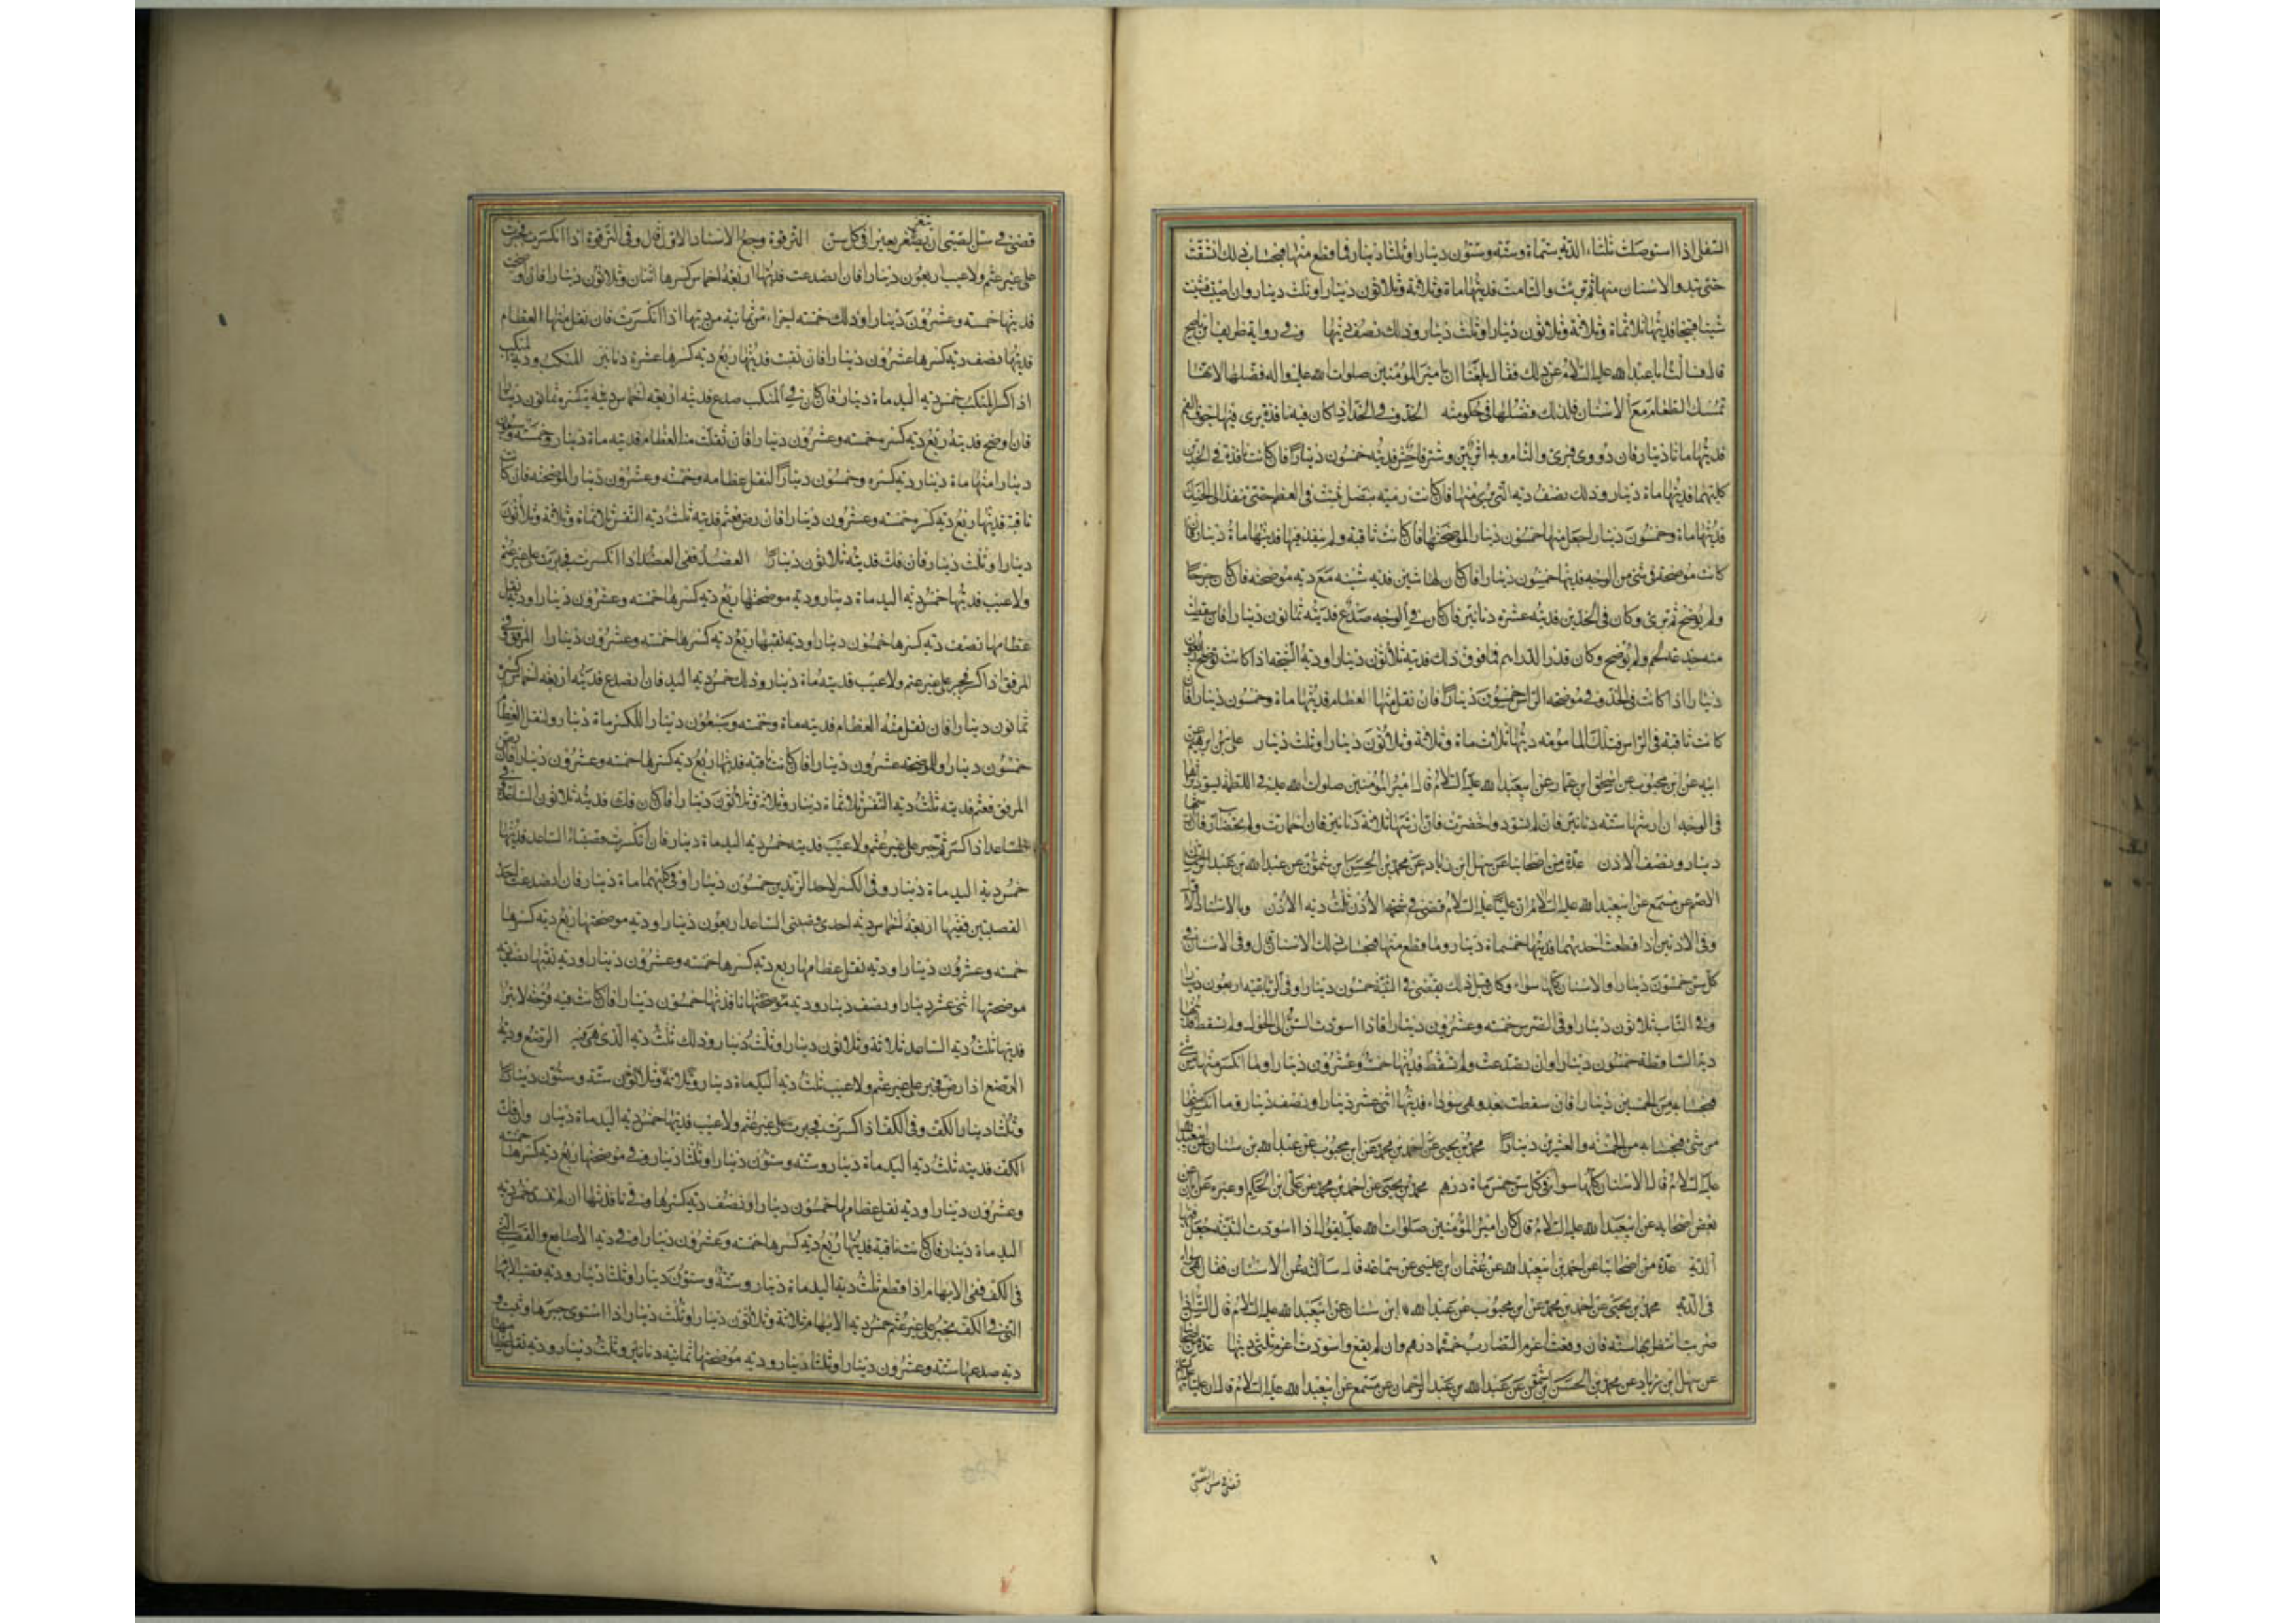 السفلى اذا استوصلت ثلثاء الدية ستماة وستة وستون دينارا وثلثا دينار فما قطع منها فبحساب ذلك انشقت
حتى تبدو الاسنان منها ثم برئت والتامت فديتها ماة وثلاثة وثلاثون دينارا وثلث دينار وان اصيبت فشينت
شينا قبيحا فديتها ثلاثماة وثلاثة وثلاثون دينارا وثلث دينار وذلك نصف ديتها وفي رواية ظريف بن ناصح
قال فسألت ابا عبد الله عليه السلام عن ذلك فقال بلغنا ان امير المؤمنين صلوات الله عليه واله فضلها لانها
تمسك الطعام مع الاسنان فلذلك فضلها في حكومته الخد وفي الخد اذا كان فيه نافذة يرى فيها جوف الفم
فديتها مائتا دينار فان دووى فبرئ والتام وبه اثر بين وشتر فاحش فديته خمسون دينارا فان كانت نافذة في الخدين
كليهما فديتها ماة دينار وذلك نصف دية التي يرى منها فان كانت رمية بنصل يثبت في العظم حتى ينفذ الى الحنك
فديتها ماة وخمسون دينارا جعل منها خمسون دينارا لموضحتها فان كانت ثاقبة ولم ينفذ فيها فديتها ماة دينار فان
كانت موضحة في شئ من الوجه فديتها خمسون دينارا فان كان لها شين فدية شينه مع دية موضحته فان كان جرحا
ولم يوضح ثم برئ وكان في الخدين فديته عشرة دنانير فان كان في الوجه صدع فديته ثمانون دينارا فان سقطت
منه جذمة لحم ولم يوضح وكان قدر الدرهم فما فوق ذلك فديته ثلاثون دينارا ودية الشجة اذا كانت توضح اربعون
دينارا اذا كانت في الخد وفي موضحة الراس خمسون دينارا فان نقل منها العظام فديتها ماة وخمسون دينارا فان
كانت ثاقبة في الراس فتلك المامومة ديتها ثلاث ماة وثلاثة وثلاثون دينارا وثلث دينار على بن ابراهيم عن
ابيه عن ابن محبوب عن اسحق ابن عمار عن ابي عبد الله عليه السلام قال امير المؤمنين صلوات الله عليه في اللطمة يسود اثرها
في الوجه ان ارشها ستة دنانير فان لم تسود واخضرت فان ارشها ثلاثة دنانير فان احمارت ولم يخضار فان ارشها
دينار ونصف الاذن عدة من اصحابنا عن سهل ابن زياد عن محمد بن الحسن ابن شمون عن عبد الله بن عبد الرحمن
الاصم عن مسمع عن ابي عبد الله عليه السلام ان عليا عليه السلام قضى في شحمة الاذن ثلث دية الاذن وبالاسناد الاول
وفي الاذنين اذا قطعت احديهما فديتها خمسماة دينار وما قطع منها فبحساب ذلك الاسنان قال وفي الاسنان في
كل سن خمسون دينارا والاسنان كلها سواء وكان قبل ذلك يقضى في الثنية خمسون دينارا وفي الرباعية اربعون دينارا
وفي الناب ثلاثون دينارا وفي الضرس خمسة وعشرون دينارا فاذا اسودت السن الى الحول ولم تسقط فديتها
دية الساقطة خمسون دينارا وان تصدعت ولم تسقط فديتها خمسة وعشرون دينارا وما انكسر منها من شئ
فبحسابه من الخمسين دينارا فان سقطت بعد وهي سوداء فديتها اثنى عشر دينارا ونصف دينار وما انكسر منها
من شئ فبحسابه من الخمسة والعشرين دينارا محمد بن يحيى عن احمد بن محمد عن ابن محبوب عن عبد الله بن سنان عن ابي عبد الله
عليه السلام قال الاسنان كلها سواء في كل سن خمس ماة درهم محمد بن يحيى عن احمد بن محمد عن على ابن الحكم وغيره عن ابان عن
بعض اصحابه عن ابي عبد الله عليه السلام قال كان امير المؤمنين صلوات الله عليه يقول اذا اسودت الثنية جعل فيها
الدية عدة من اصحابنا عن احمد بن ابي عبد الله عن عثمان ابن عيسى عن سماعة قال سالته عن الاسنان فقال هي سواء
في الدية محمد بن يحيى عن احمد بن محمد عن ابن محبوب عن عبد الله ابن سنان عن ابي عبد الله عليه السلام قال السن اذا
ضربت انتظر بها سنة فان وقعت اغرم الضارب خمسماة درهم وان لم يقع واسودت اغرم ثلثي ديتها عدة من اصحابنا
عن سهل ابن زياد عن محمد بن الحسن ابن شمون عن عبد الله بن عبد الرحمان عن مسمع عن ابي عبد الله عليه السلام قال ان عليا عليه السلام
قضى في سن الصبي
قضى في سن الصبي ان يثغر بعيرا في كل سن الترقوة وبهذا الاسناد الاول قال وفي الترقوة اذا انكسرت فجبرت
على غير عثم ولا عيب اربعون دينارا فان انصدعت فديتها اربعة اخماس كسرها اثنان وثلاثون دينارا فان اوضحت
فديتها خمسة وعشرون دينارا وذلك خمسة اجزاء من ثمانية من ديتها اذا انكسرت فان نقل منها العظام
فديتها نصف دية كسرها عشرون دينارا فان نقبت فديتها ربع دية كسرها عشرة دنانير المنكب ودية المنكب
اذا كسر المنكب خمس دية اليد ماة دينار فان كان في المنكب صدع فديته اربعة اخماس دية كسره ثمانون دينارا
فان اوضح فديته ربع دية كسره خمسة وعشرون دينارا فان نقلت منه العظام فديته ماة دينار وخمسة وسبعون
دينارا منها ماة دينار دية كسره وخمسون دينارا لنقل عظامه وخمسة وعشرون دينارا لموضحته فان كانت
ناقبة فديتها ربع دية كسره خمسة وعشرون دينارا فان رض فعثم فديته ثلث دية النفس ثلاثماة وثلاثة وثلاثون
دينارا وثلث دينار فان فك فديته ثلاثون دينارا العضد ففي العضد اذا انكسرت فجبرت على غير عثم
ولا عيب فديتها خمس دية اليد ماة دينار ودية موضحتها ربع دية كسرها خمسة وعشرون دينارا ودية نقل
عظامها نصف دية كسرها خمسون دينارا ودية نقبها ربع دية كسرها خمسة وعشرون دينارا المرفق وفي
المرفق اذا كسر فجبر على غير عثم ولا عيب فديته ماة دينار وذلك خمس دية اليد فان انصدع فديته اربعة اخماس كسره
ثمانون دينارا فان نقل منه العظام فديته ماة وخمسة وسبعون دينارا للكسر ماة دينار ولنقل العظام
خمسون دينارا وللموضحة عشرون دينارا فان كانت ناقبة فديتها ربع دية كسرها خمسة وعشرون دينارا فان رض
المرفق فعثم فديته ثلث دية النفس ثلاثماة دينار وثلاثة وثلاثون دينارا فان كان فك فديته ثلاثون الساعد في
الساعد اذا كسر ثم جبر على غير عثم ولا عيب فديته خمس دية اليد ماة دينار فان انكسرت قصبتا الساعد فديتها
خمس دية اليد ماة دينار وفي الكسر لاحد الزندين خمسون دينارا وفي كليهما ماة دينار فان انصدعت احد
القصبتين ففيها اربعة اخماس دية احدى قصبتى الساعد اربعون دينارا ودية موضحتها ربع دية كسرها
خمسة وعشرون دينارا ودية نقل عظامها ربع دية كسرها خمسة وعشرون دينارا ودية نقبها نصف دية
موضحتها اثنى عشر دينارا ونصف دينار ودية نافذتها خمسون دينارا فان كانت فيه قرحة لا تبرا
فديتها ثلث دية الساعد ثلاثة وثلاثون دينارا وثلث دينار وذلك ثلث دية الذى هي فيه الرصغ ودية
الرصغ اذا رض فجبر على غير عثم ولا عيب ثلث دية اليد ماة دينار وستة وستون دينارا
وثلثا دينار الكف وفي الكف اذا كسرت فجبرت على غير عثم ولا عيب فديتها خمس دية اليد ماة دينار وان فك
الكف فديته ثلث دية اليد ماة دينار وستة وستون دينارا وثلثا دينار وفي موضحتها ربع دية كسرها خمسة
وعشرون دينارا ودية نقل عظامها خمسون دينارا ونصف دية كسرها وفي نافذتها ان لم تنسد خمس دية
اليد ماة دينار فان كانت ناقبة فديتها ربع دية كسرها خمسة وعشرون دينارا وفي دية الاصابع والقصب التي
في الكف ففي الابهام اذا قطع ثلث دية اليد ماة دينار وستة وستون دينارا وثلثا دينار ودية قصبة الابهام
التي في الكف تجبر على غير عثم خمس دية الابهام ثلاثة وثلاثون دينارا وثلث دينار اذا استوى جبرها وثبت و
دية صدعها ستة وعشرون دينارا وثلثا دينار ودية موضحتها ثمانية دنانير وثلث دينار ودية نقل عظامها